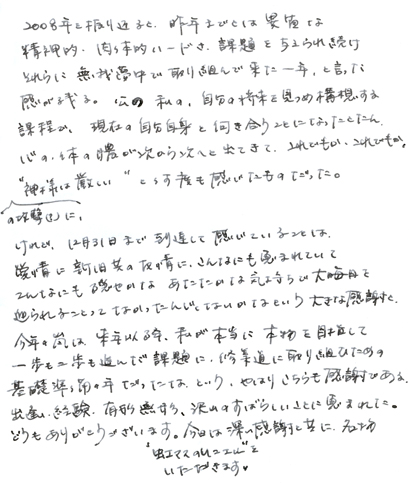 2008年を振り返ると、昨年までとは異質な
精神的・肉体的ハードさ、課題を与えられ続け
それらに無我夢中で取り組んで来た一年、と言った
感が残る。公の私の、自分の将来を見つめ構想する
課程が、現在の自分自身と向き合うことになったとたん
心の・体の膿が次から次へと出てきて、これでもか、これでもか、
"神様は厳しい"と何度も感じたものだった。
の攻撃(?)に、
けれど、12月31日まで到達して感じていることは、
愛情に新旧共の友情に、こんなにも恵まれていて
こんなにも穏やかな あたたかな気持ちで大晦日を
迎られることってなかったんじゃないかなという大きな感謝だ。
今年の嵐は、来年以降、私が本当に本物を目指して
一歩も二歩も進んだ課題に、修業道に取り組むための
基礎準備の年だったなという、やはりこちらも感謝である。
出逢い、経験、有形無形の、沢山のすばらしいことに恵まれた。
どうもありがとうございます。今日は深い感謝と共に、
いただきます。